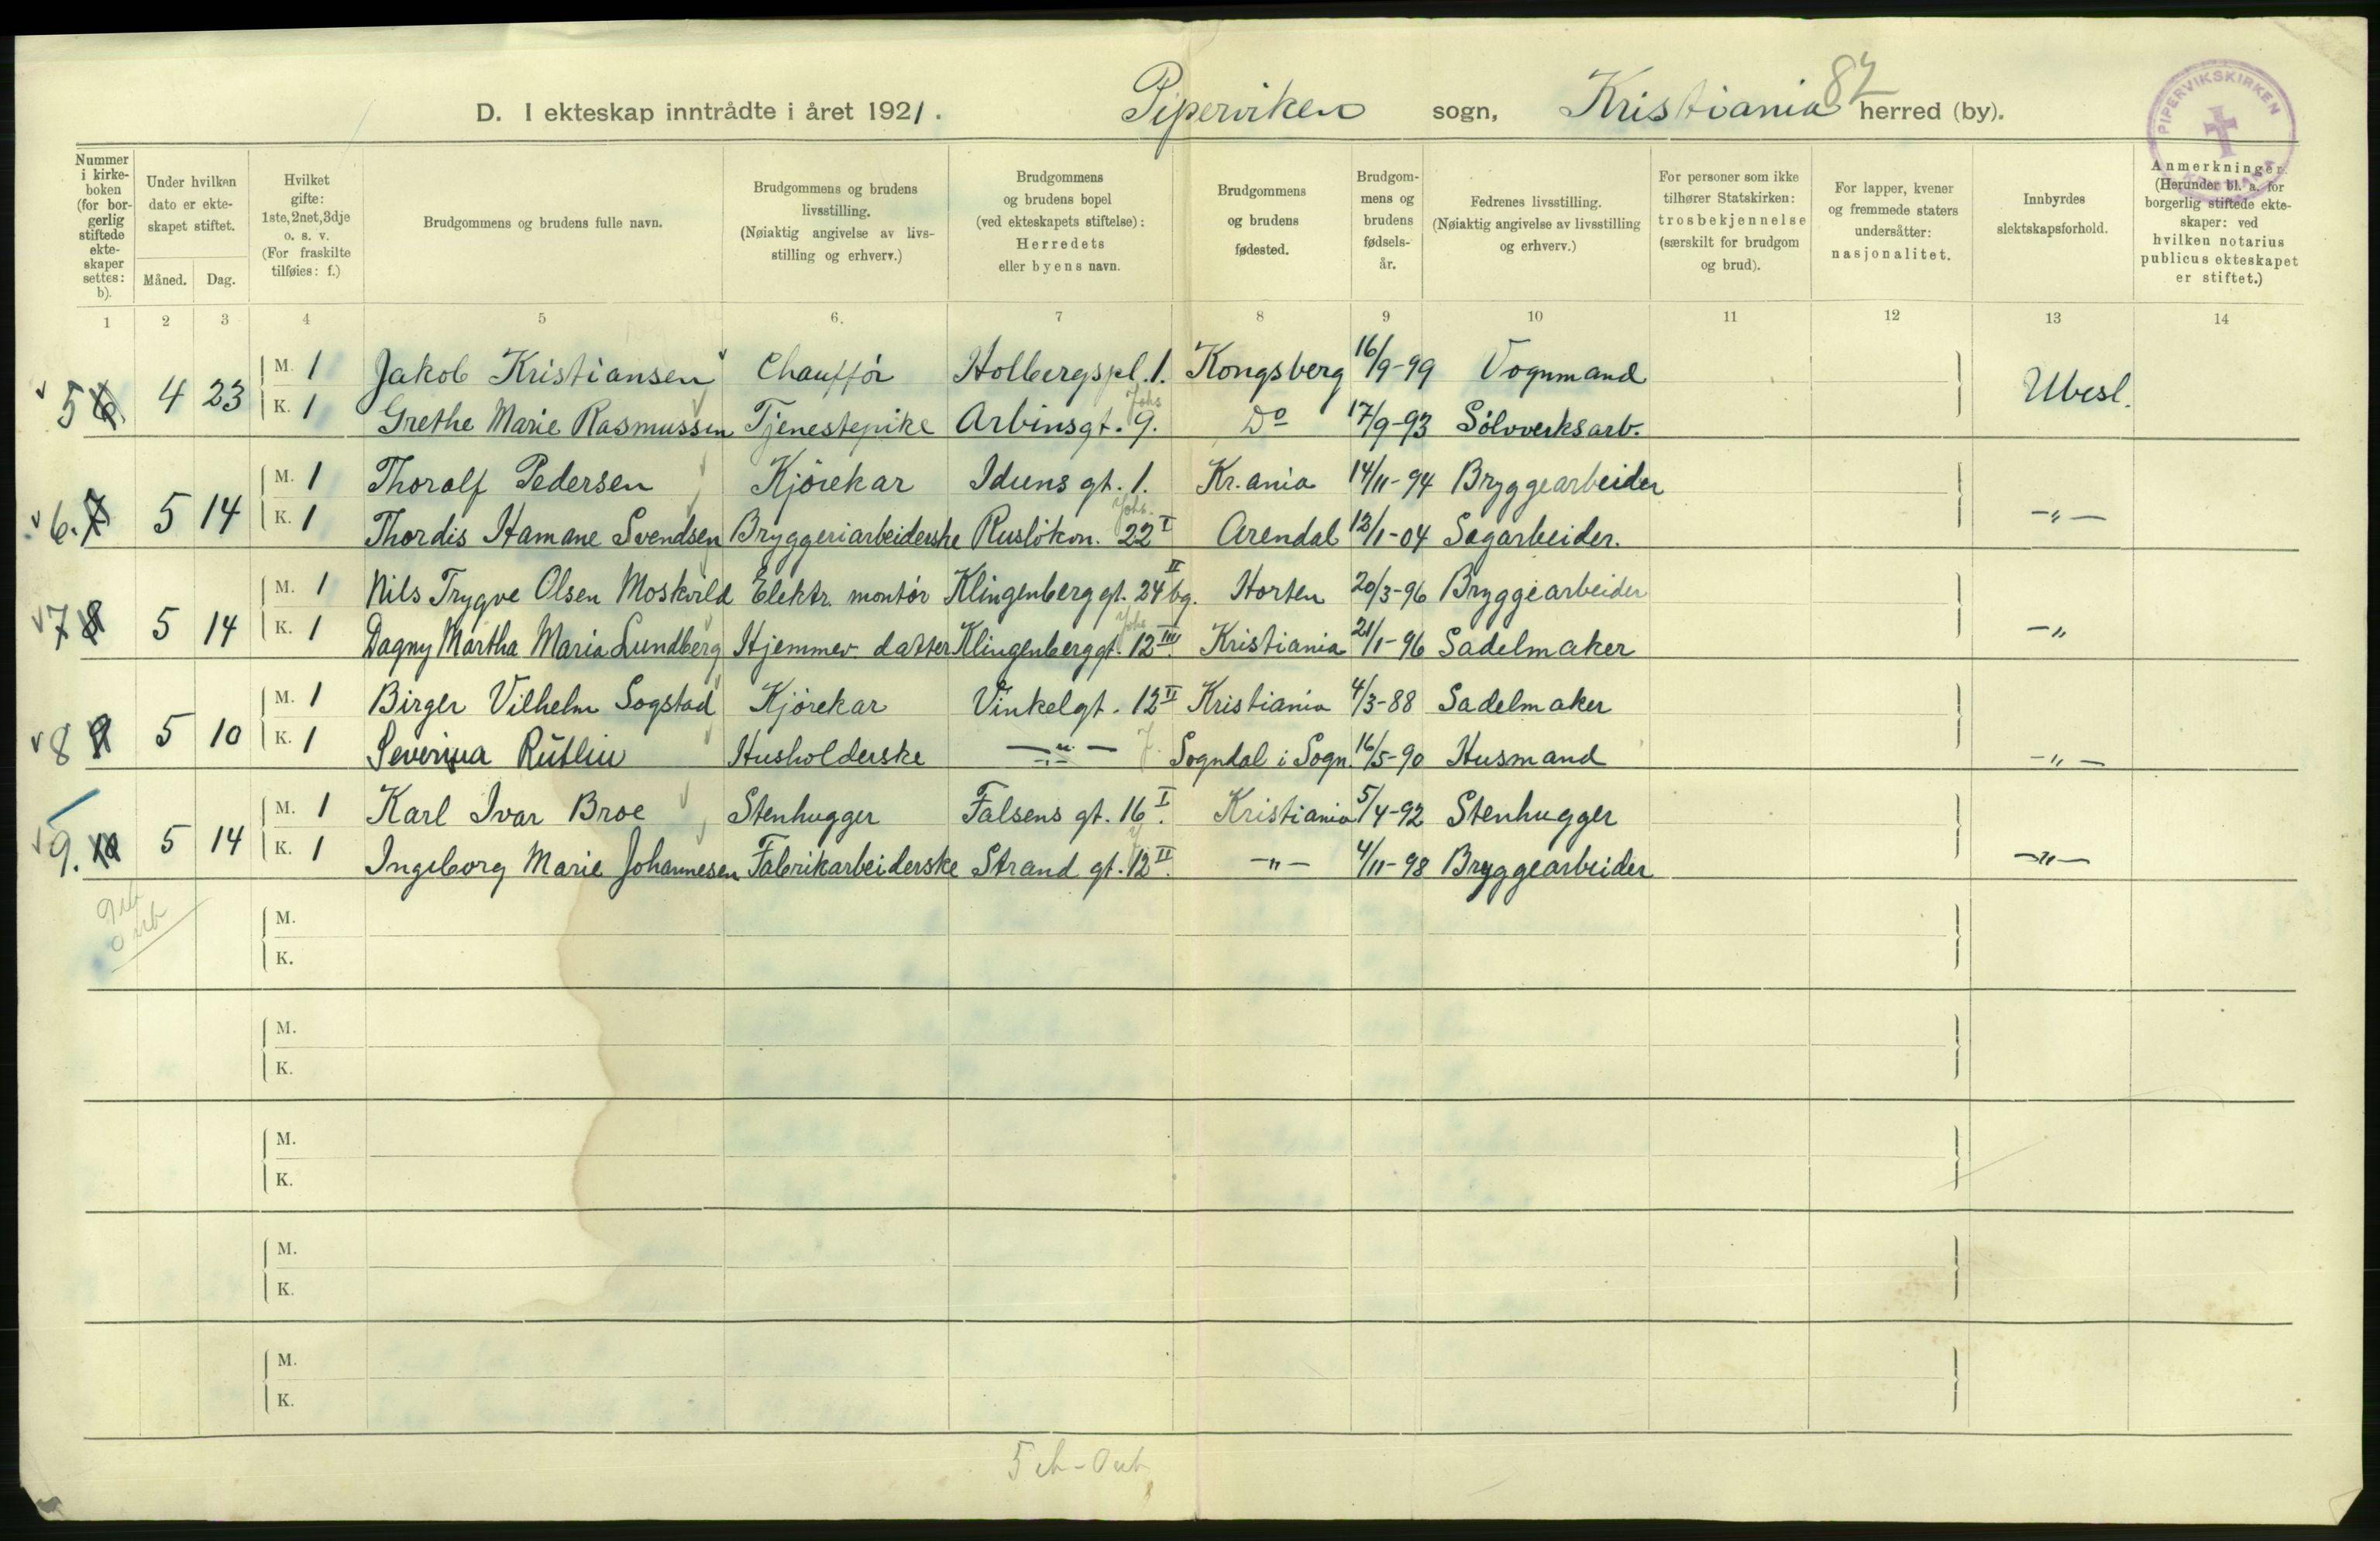 D. I ekteskap inntrådte i året 1921. Piperviken sogn, Kristiania herred (by).
82
PIPERVIKSKIRKEN
Nummer i kirkeboken (for borgerlig stiftede ekteskaper settes: b).
Under hvilken dato er ekteskapet stiftet.
Måned. Dag.
Hvilket gifte: 1ste, 2net, 3dje o. s. v. (For fraskilte tilføies: f.)
Brudgommens og brudens fulle navn.
Brudgommens og brudens livsstilling. (Nøiaktig angivelse av livsstilling og erhverv.)
Brudgommens og brudens bopel (ved ekteskapets stiftelse): Herredets eller byens navn.
Brudgommens og brudens fødested.
Brudgommens og brudens fødselsår.
Fedrenes livsstilling. (Nøiaktig angivelse av livsstilling og erhverv.)
For personer som ikke tilhører Statskirken: trosbekjennelse (særskilt for brudgom og brud).
For lapper, kvener og fremmede staters undersåtter: nasjonalitet.
Innbyrdes slektskapsforhold.
Anmerkninger. (Herunder bl. a. for borgerlig stiftede ekteskaper: ved hvilken notarius publicus ekteskapet er stiftet.)
1 2 3 4 5 6. 7 8 9 10 11 12 13 14
5 6. 4 23 M. 1 Jakob Kristiansen Chauffør Holbergs pl. 1. Kongsberg 16/9-99 Vognmand Ubesl.
K. 1 Grethe Marie Rasmussen Tjenestepike Arbinsgt. 9. Do 17/9-93 Sølvverksarb.
6. 7 5 14 M. 1 Thoralf Pedersen Kjørekar Iduns gt. 1. Kr.ania 14/11-94 Bryggearbeider -"-
K. 1 Thordis Hamane Svendsen Bryggeriarbeiderske Ruseløkvn. 22 I Arendal 12/1-04 Sagarbeider.
7 8 5 14 M. 1 Nils Trygve Olsen Moskvild Elektr. montør Klingenberg gt. 24 II bg. Horten 20/3-96 Bryggearbeider -"
K. 1 Dagny Martha Maria Lundberg Hjemmev. datter Klingenberg gt. 12 III Kristiania 21/1-96 Sadelmaker
8 9 5 10 M. 1 Birger Vilhelm Sogstad Kjørekar Vinkelgt. 12 II Kristiania 4/3-88 Sadelmaker -"-
K. 1 Severina Rütlin Husholderske -"- Sogndal i Sogn. 16/5-90 Husmand
9. 10 5 14 M. 1 Karl Ivar Broe Stenhugger Falsens gt. 16 I. Kristiania 5/4-92 Stenhugger -"-
K. 1 Ingeborg Marie Johannesen Fabrikarbeiderske Strand gt. 12 II. -"- 4/11-98 Bryggearbeider
M.
K.
M.
K.
M.
K.
M.
K.
M.
K.